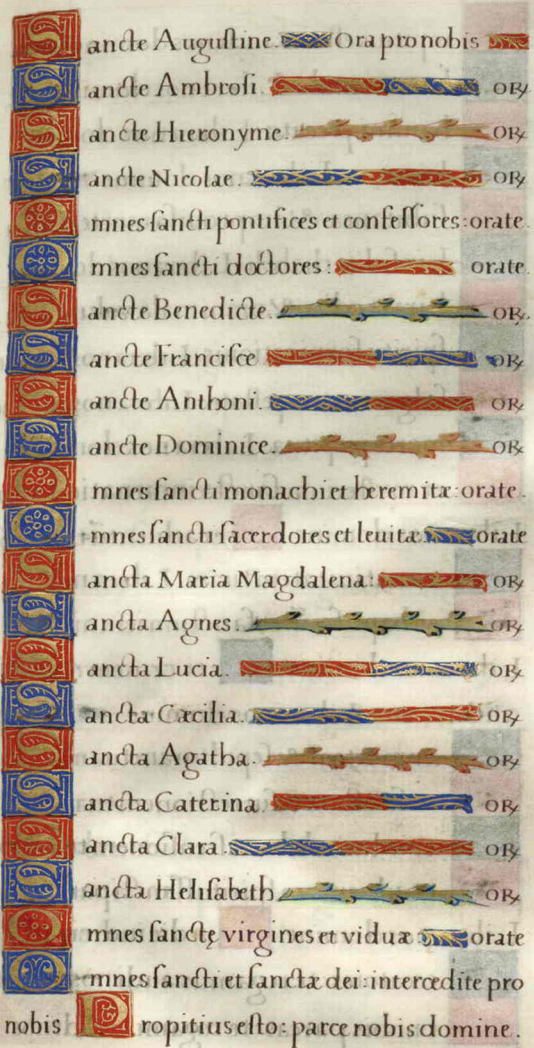 Sancte Augustine. Ora pro nobis
Sancte Ambrosi. or
Sancte Hieronyme. or
Sancte Nicolae. or
Omnes sancti pontifices et confessores: orate.
Omnes sancti doctores: orate.
Sancte Benedicte. or.
Sancte Francisce or
Sancte Anthoni. or
Sancte Dominice. or
Omnes sancti monachi et heremitæ: orate.
Omnes sancti sacerdotes et leuitæ: orate
Sancta Maria Magdalena: or
Sancta Agnes. or
Sancta Lucia. or
Sancta Cæcilia. or
Sancta Agatha. or
Sancta Caterina. or
Sancta Clara. or
Sancta Helisabeth. or
Omnes sanctę virgines et viduæ: orate
Omnes sancti et sanctæ dei: intercedite pro
nobis Propitius esto: parce nobis domine.